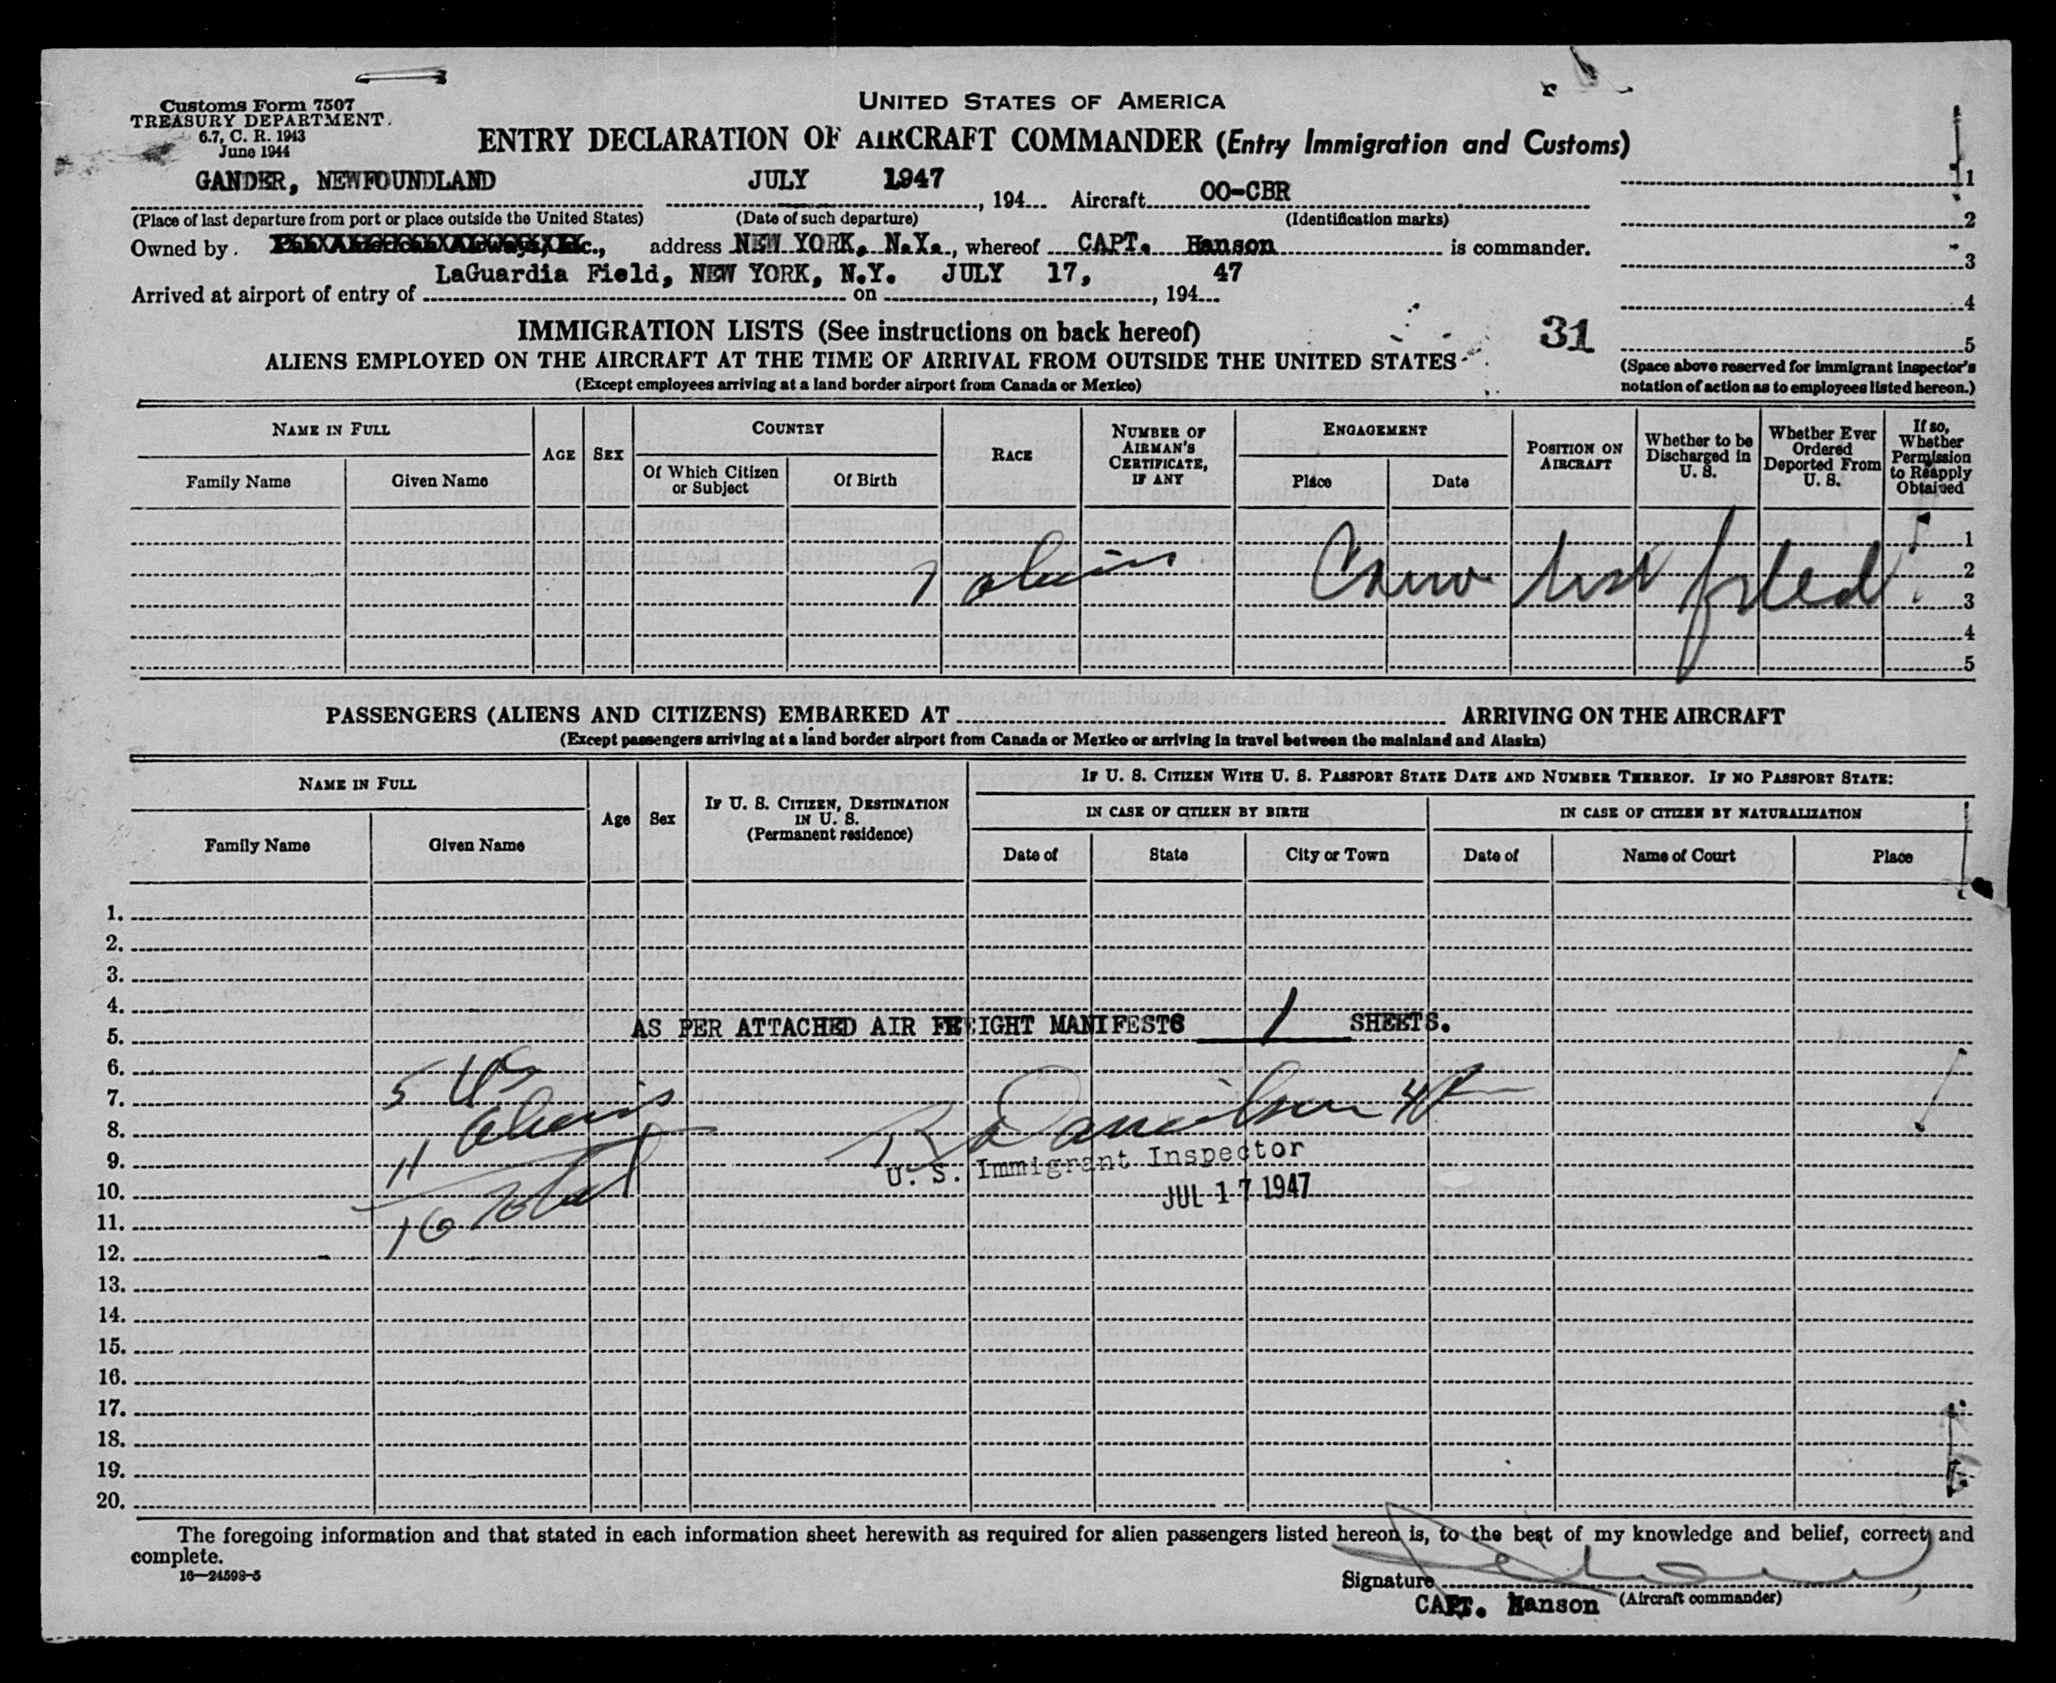 Customs Form 7507
TREASURY DEPARTMENT
6.7, C. R. 1943
June 1944
UNITED STATES OF AMERICA
ENTRY DECLARATION OF AIRCRAFT COMMANDER (Entry Immigration and Customs)
GANDER, NEWFOUNDLAND JULY 1947 , 194 Aircraft OO-CBR
(Place of last departure from port or place outside the United States) (Date of such departure) (Identification marks)
Owned by address NEW YORK, N.Y., whereof CAPT. Hanson is commander.
LaGuardia Field, NEW YORK, N.Y. JULY 17, 47
Arrived at airport of entry of on , 194
1
2
3
4
5
(Space above reserved for immigrant inspector's
notation of action as to employees listed hereon.)
31
IMMIGRATION LISTS (See instructions on back hereof)
ALIENS EMPLOYED ON THE AIRCRAFT AT THE TIME OF ARRIVAL FROM OUTSIDE THE UNITED STATES
(Except employees arriving at a land border airport from Canada or Mexico)
NAME IN FULL
Family Name Given Name
AGE SEX
COUNTRY
Of Which Citizen or Subject Of Birth
RACE
NUMBER OF AIRMAN'S CERTIFICATE, IF ANY
ENGAGEMENT
Place Date
POSITION ON AIRCRAFT
Whether to be Discharged in U. S.
Whether Ever Ordered Deported From U. S.
If so, Whether Permission to Reapply Obtained
1
2
3
4
5
7 aliens Crew list filed
PASSENGERS (ALIENS AND CITIZENS) EMBARKED AT ARRIVING ON THE AIRCRAFT
(Except passengers arriving at a land border airport from Canada or Mexico or arriving in travel between the mainland and Alaska)
NAME IN FULL
Family Name Given Name
Age Sex
IF U. S. CITIZEN, DESTINATION IN U. S. (Permanent residence)
IF U. S. CITIZEN WITH U. S. PASSPORT STATE DATE AND NUMBER THEREOF. IF NO PASSPORT STATE:
IN CASE OF CITIZEN BY BIRTH IN CASE OF CITIZEN BY NATURALIZATION
Date of State City or Town Date of Name of Court Place
1.
2.
3.
4.
5. AS PER ATTACHED AIR FREIGHT MANIFESTS 1 SHEETS.
6.
7. 5 US
8. 11 Aliens
9. U. S. Immigrant Inspector
10. JUL 17 1947
11. 16 Total
12.
13.
14.
15.
16.
17.
18.
19.
20.
The foregoing information and that stated in each information sheet herewith as required for alien passengers listed hereon is, to the best of my knowledge and belief, correct and
complete.
16—24598-5
Signature
CAPT. Hanson (Aircraft commander)